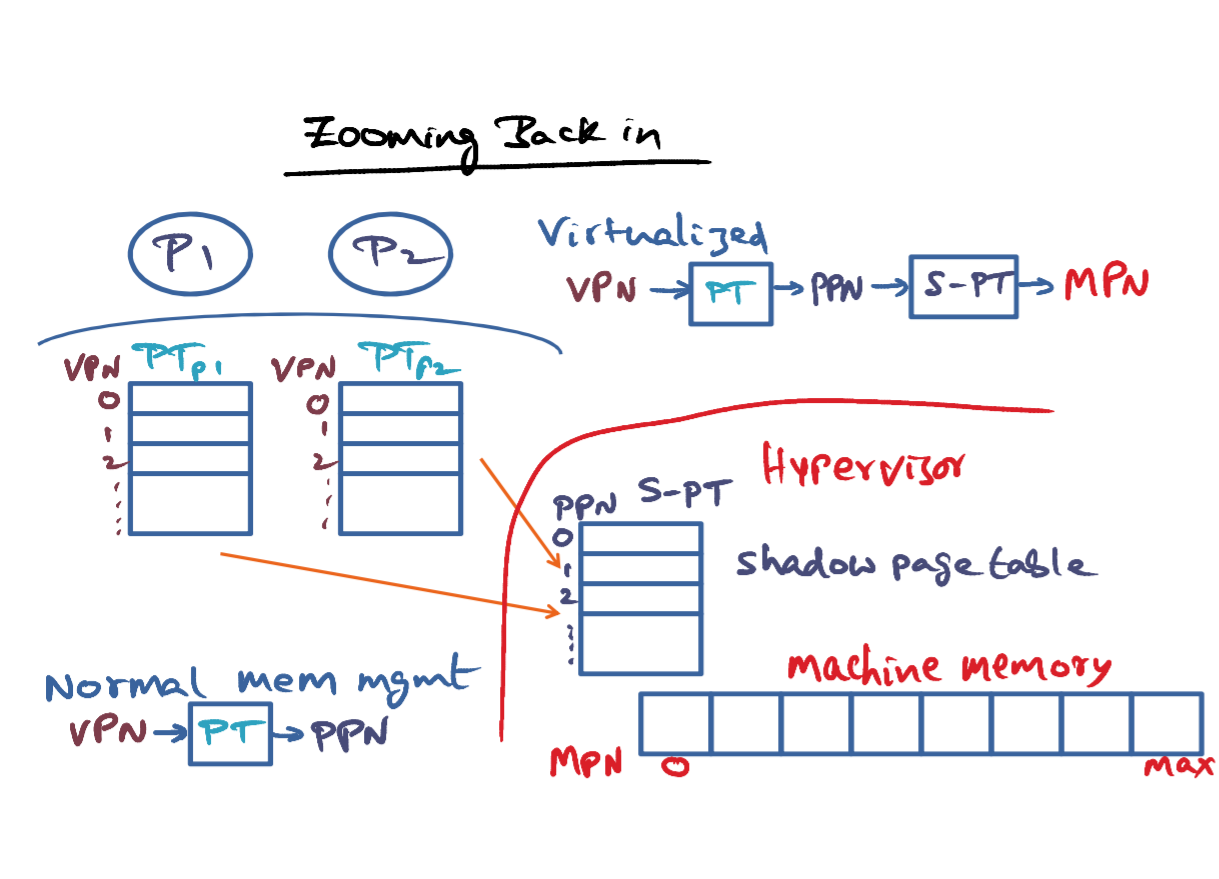 Zooming Back in
P1 P2
Virtualized
VPN → PT → PPN → S-PT → MPN
VPN PTP1 VPN PTP2
0 0
1 1
2 2
Hypervisor
PPN S-PT
0
1
2
shadow page table
Normal mem mgmt
VPN → PT → PPN
machine memory
MPN 0 max